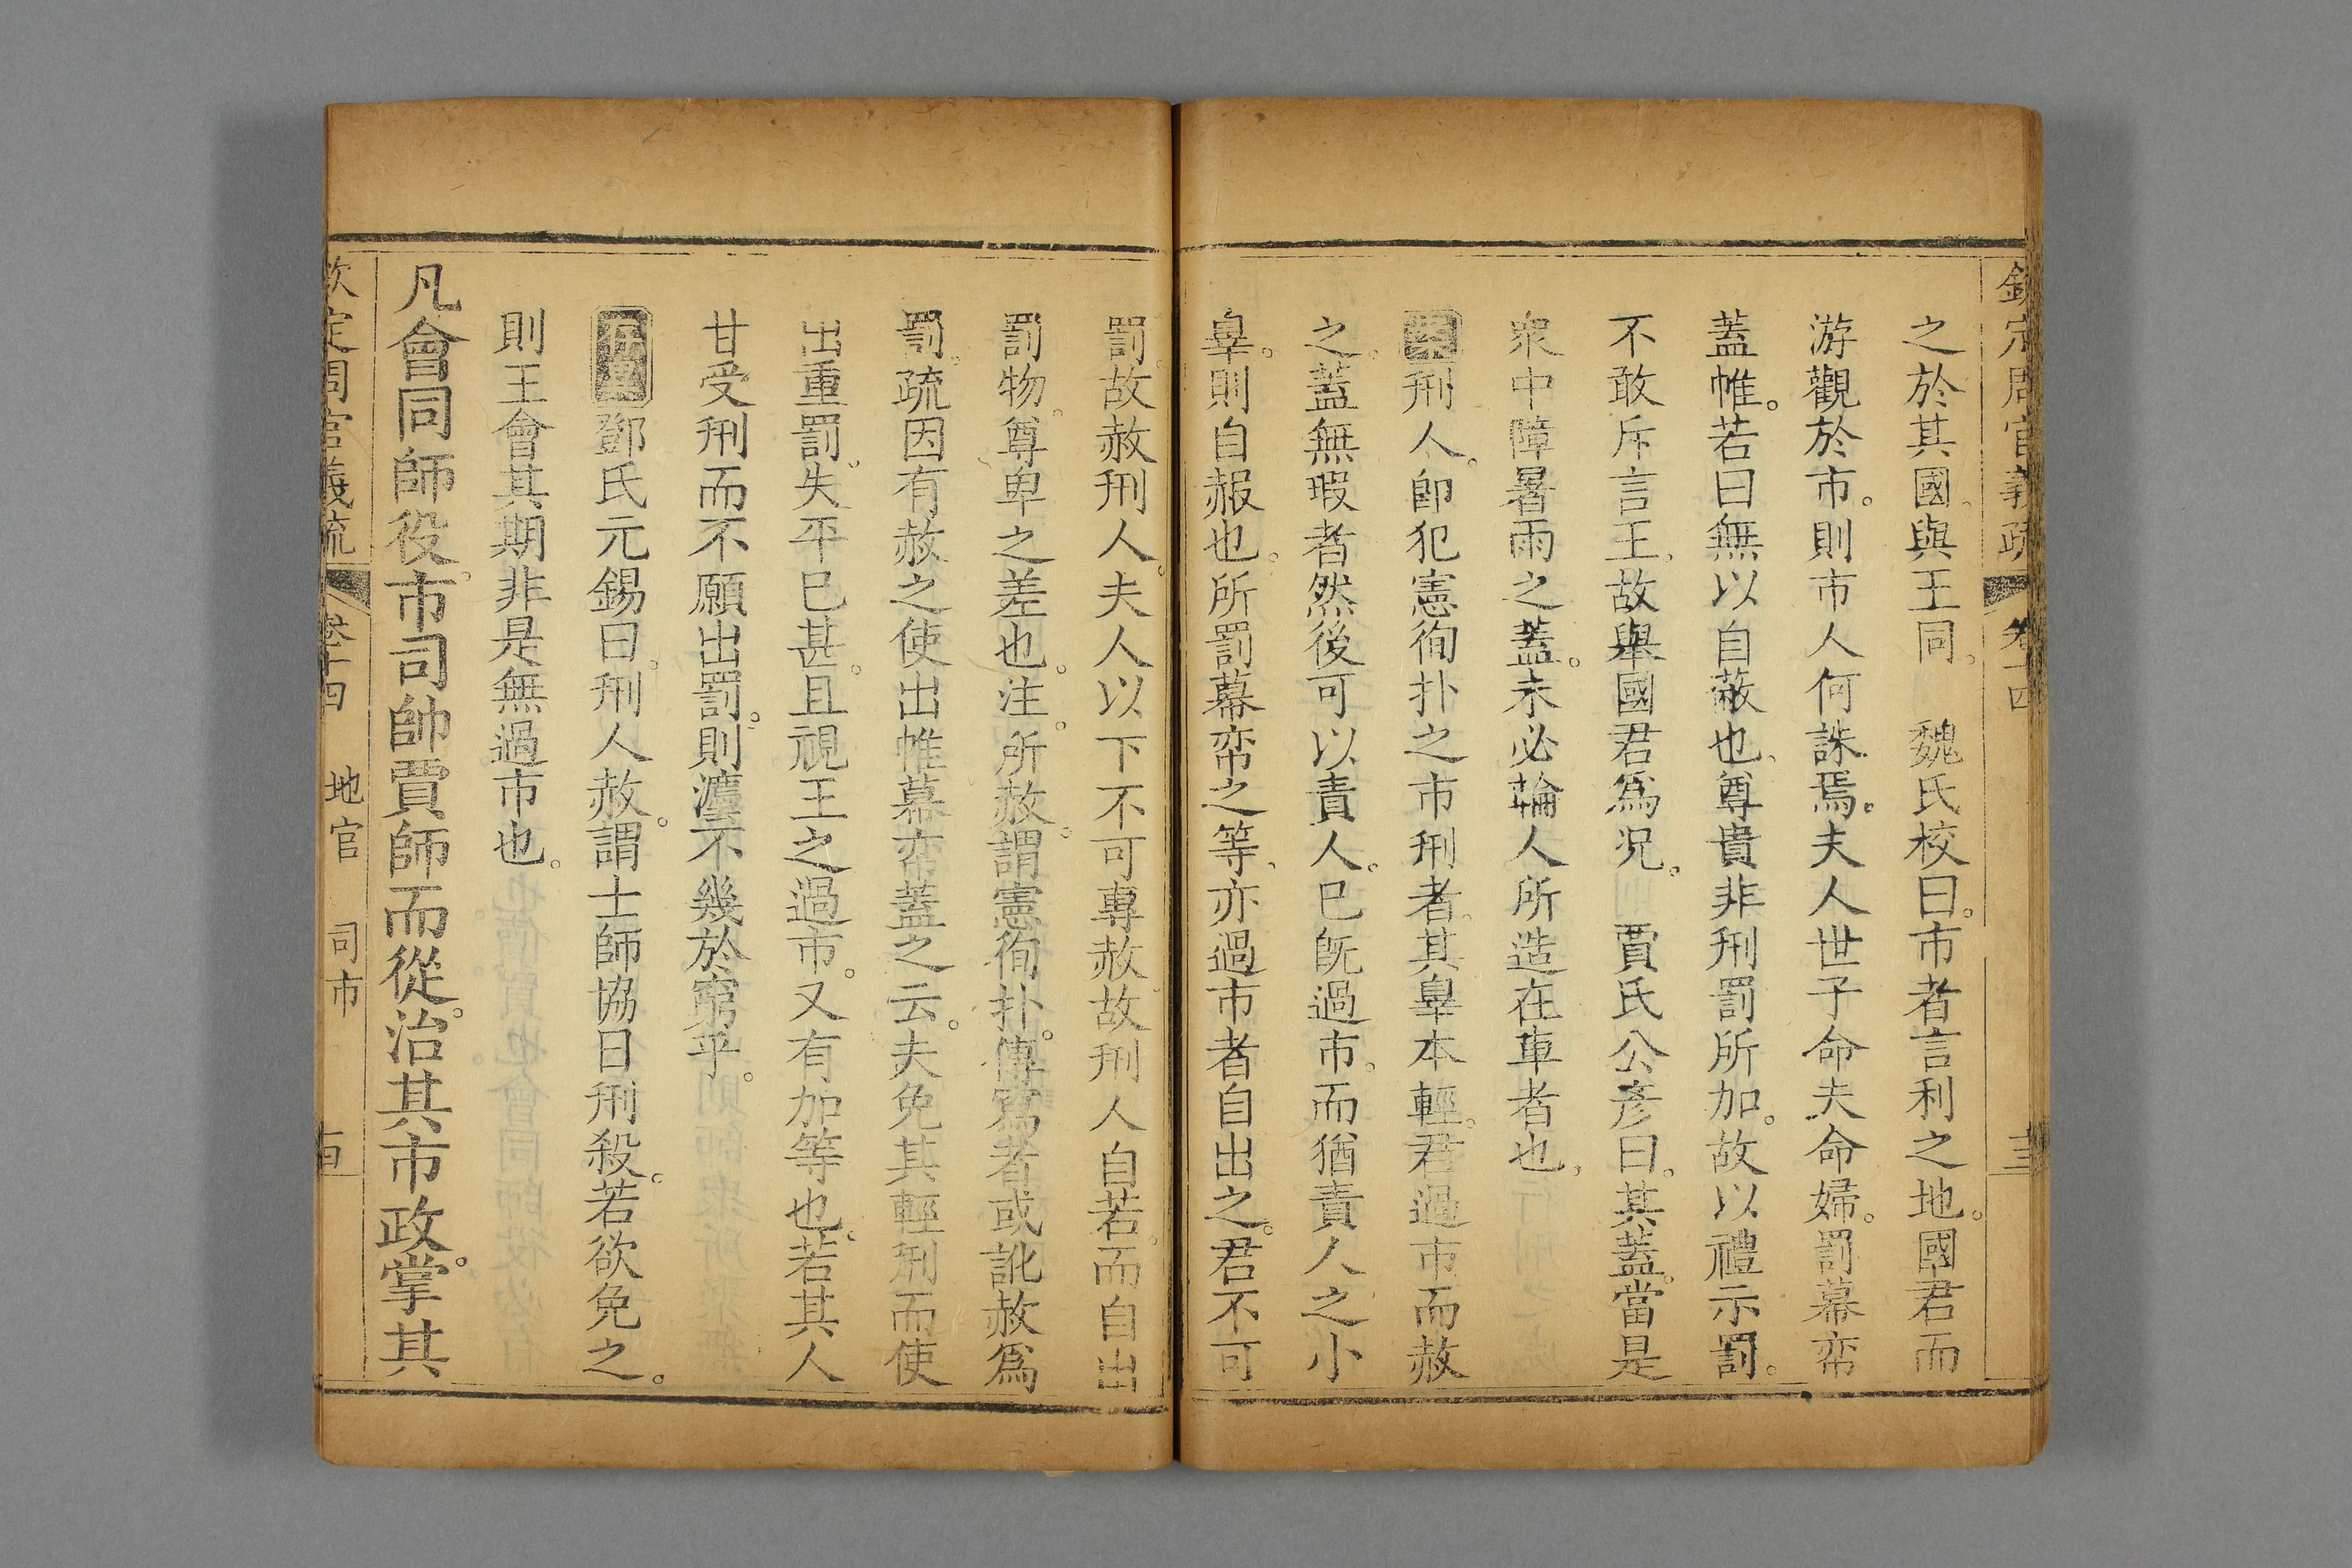 欽定周官義疏 卷十四
之於其國。與王同。 魏氏校曰。市者言利之地。國君而
游觀於市。則市人何誅焉。夫人世子命夫命婦。罰幕帟
蓋帷。若曰無以自蔽也、尊貴非刑罰所加。故以禮示罰。
不敢斥言王、故舉國君爲況。 賈氏公彥曰。其蓋。當是
衆中障暑雨之蓋。未必輪人所造在車者也、
案刑人。卽犯憲徇扑之市刑者。其辠本輕。君過市而赦
之。蓋無瑕者然後可以責人。已既過市。而猶責人之小
辠。則自赧也。所罰幕帟之等、亦過市者自出之。君不可
罰。故赦刑人。夫人以下不可專赦。故刑人自若。而自出
罰物。尊卑之差也。注。所赦。謂憲徇扑。傳寫者或訛赦爲
罰。疏因有赦之使出帷幕帟蓋之云。夫免其輕刑而使
出重罰。失平已甚。且視王之過市。又有加等也。若其人
甘受刑而不願出罰。則灋不幾於窮乎。
鄧氏元錫曰。刑人赦。謂士師協日刑殺。若欲免之。
則王會其期非是無過市也。
凡會同師役。市司帥賈師而從。治其市政。掌其
欽定周官義疏 卷十四 地官 司市